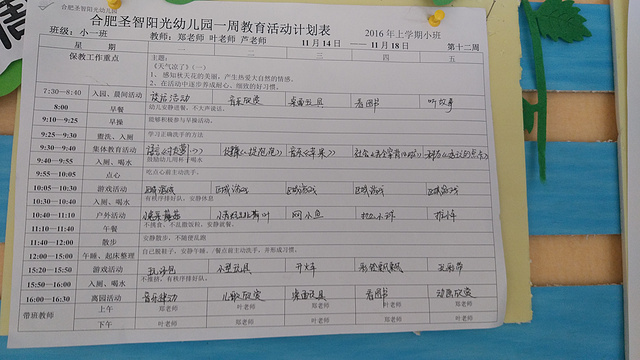 合肥圣智阳光幼儿园
合肥圣智阳光幼儿园一周教育活动计划表
班级：小一班 教师：郑老师 叶老师 芦老师 11月14日 —— 11月18日 2016年上学期小班 第十二周
星 期 一 二 三 四 五
保教工作重点 主题：
《天气凉了》（一）
1、感知秋天花的美丽，产生热爱大自然的情感。
2、在活动中逐步养成耐心、细致的好习惯。
7:30—8:40 入园、晨间活动 谈话活动 音乐欣赏 桌面玩具 看图书 听故事
8:00 早餐 幼儿安静进餐，不大声说话。
9:10—9:25 早操 能够积极参与早操活动。
9:25—9:30 盥洗、入厕 学习正确洗手的方法
9:30—9:40 集体教育活动
9:40—9:55 入厕、喝水 鼓励幼儿用杯子喝水
9:55—10:05 点心 吃点心前主动洗手。
10:05—10:30 游戏活动 区域游戏 区域游戏 区域游戏 区域游戏 区域游戏
10:30—10:40 入厕、喝水 有秩序排好队，安静休息
10:40—11:10 户外活动 网小鱼
11:10—11:40 午餐 不挑食、不乱撒饭粒，安静就餐。
11:40—12:00 散步 安静散步，不随便乱跑
12:00—15:00 午睡、起床整理 自己脱鞋子，安静午睡。/餐点前主动洗手，并形成习惯。
15:20—15:50 游戏活动 玩沙包 开火车
15:50—16:00 入厕、喝水 不推挤，有秩序排好队。
16:00—16:30 离园活动 音乐律动 儿歌欣赏 桌面玩具 看图书 动画欣赏
带班教师 上午 郑老师 叶老师 郑老师 叶老师 郑老师
下午 叶老师 郑老师 叶老师 郑老师 叶老师